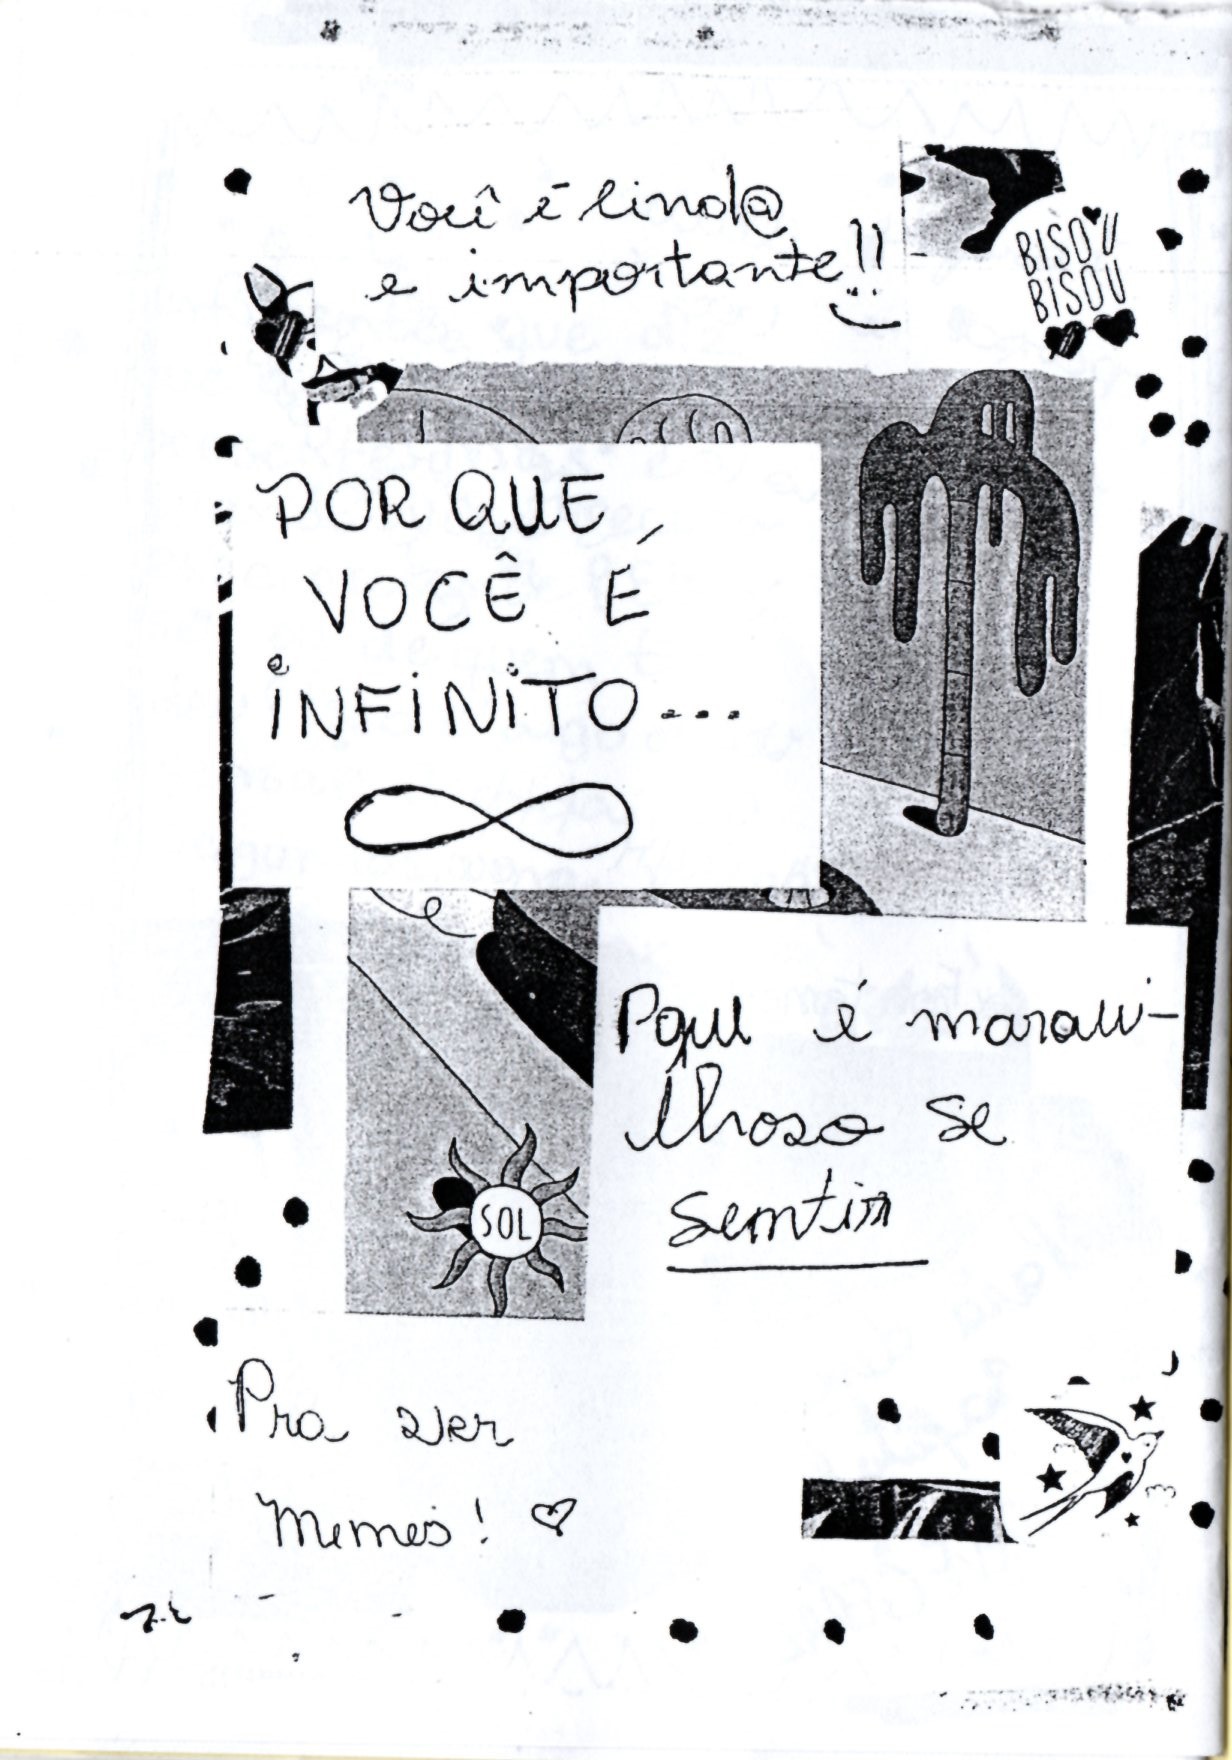 Você é lind@
e importante!!
BISOU
BISOU
POR QUE
VOCÊ É
INFINITO...
Pqui é maravi-
lhoso se
sentir
SOL
Pra ver
Memes!